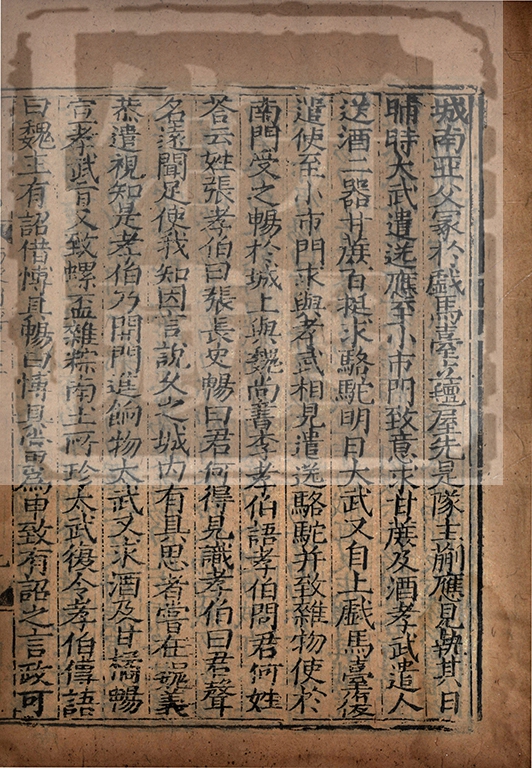 城南亞父冢於戲馬臺立氊屋先是隊主蒯應見執其日
晡時太武遣送應至小市門致意求甘蔗及酒孝武遣人
送酒二器甘蔗百挺求駱駝明日太武又自上戲馬臺復
遣使至小市門求與孝武相見遣送駱駝并致雜物使於
南門受之暢於城上與魏尚書李孝伯語孝伯問君何姓
荅云姓張孝伯曰張長史暢曰君何得見識孝伯曰君聲
名遠聞足使我知因言說久之城内有具思者嘗在魏義
恭遣視知是孝伯乃開門進餉物太武又求酒及甘橘暢
宣孝武旨又致螺盃雜粽南土所珍太武復令孝伯傳語
曰魏主有詔借愽具暢曰愽具當爲申致有詔之言政可